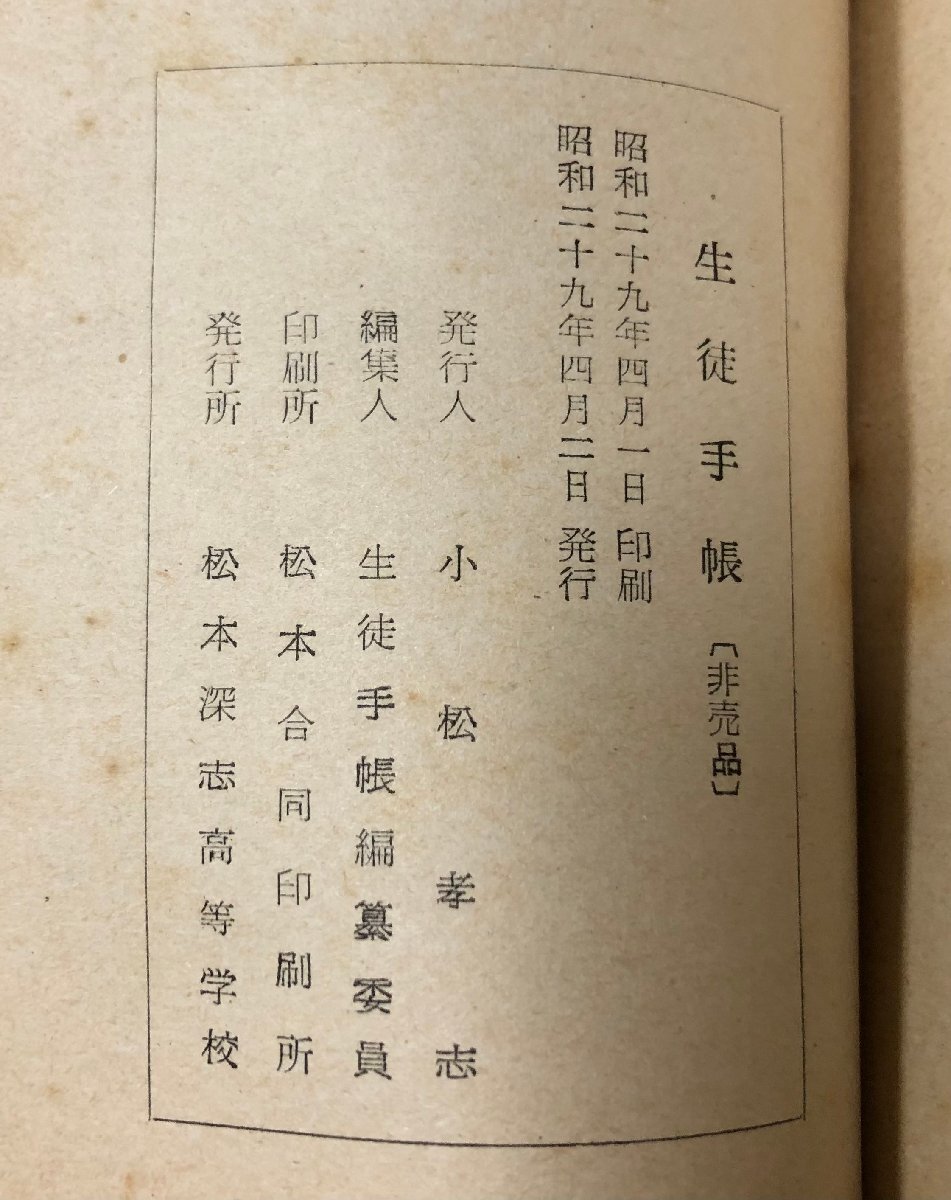 生徒手帳〔非売品〕
昭和二十九年四月一日 印刷
昭和二十九年四月二日 発行
発行人 小松孝志
編集人 生徒手帳編纂委員
印刷所 松本合同印刷所
発行所 松本深志高等学校